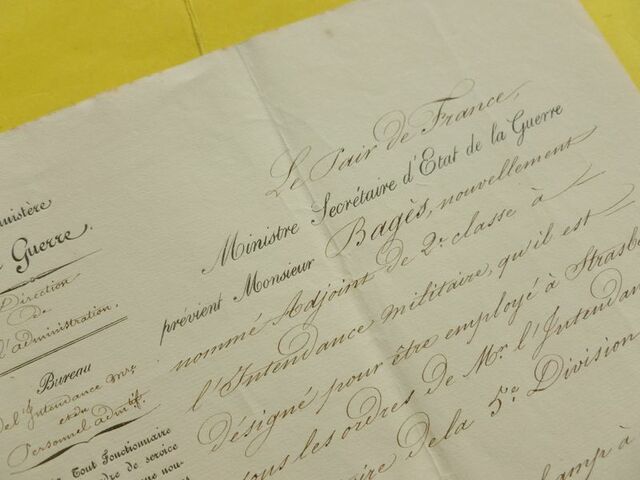 Ministère
Guerre.
Direction
de
l'administration.
Bureau
de l'Intendance Mre
et du
Personnel admtif.
Tout Fonctionnaire
de service
nou-
Le Pair de France,
Ministre Secrétaire d'Etat de la Guerre
prévient Monsieur Bagès, nouvellement
nommé Adjoint de 2e classe à
l'Intendance militaire, qu'il est
désigné pour être employé à Strasb
sous les ordres de Mr. l'Intendan
de la 5e Division